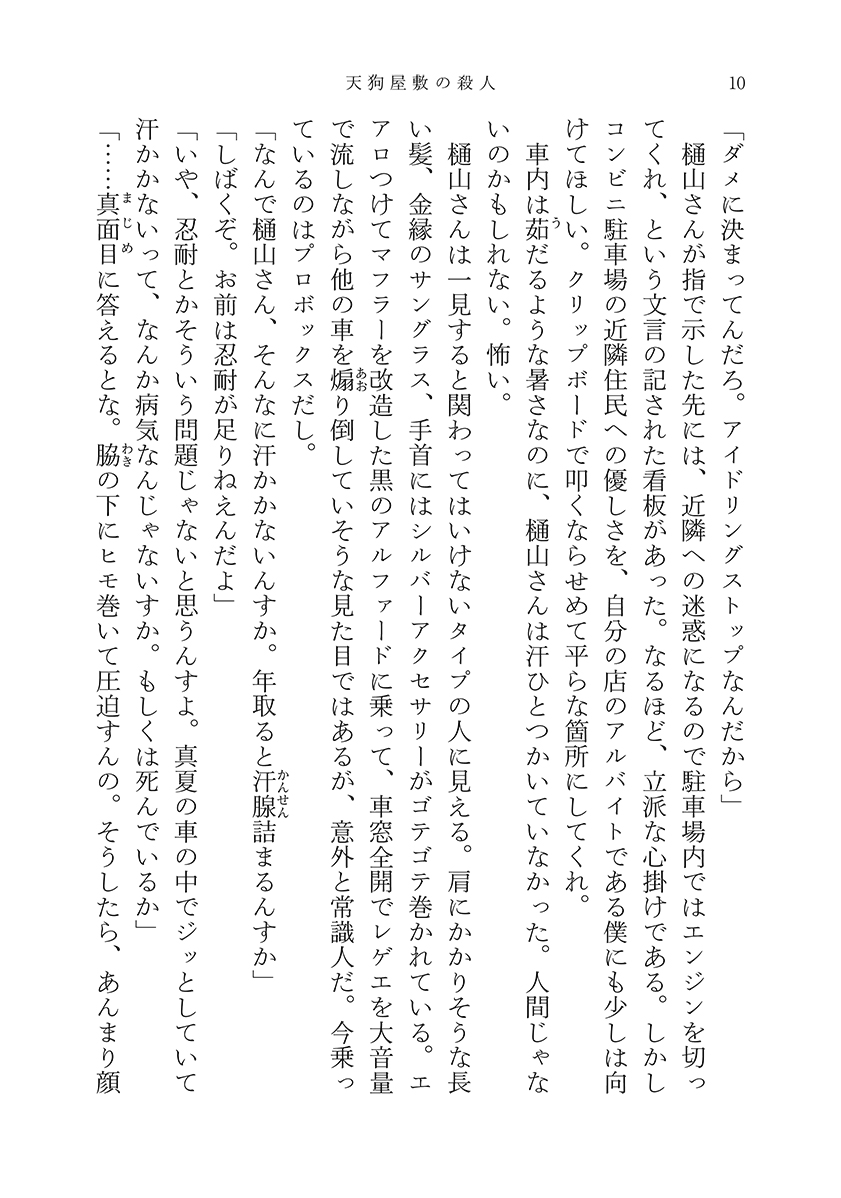 天狗屋敷の殺人
10
「ダメに決まってんだろ。アイドリングストップなんだから」
　樋山さんが指で示した先には、近隣への迷惑になるので駐車場内ではエンジンを切っ
てくれ、という文言の記された看板があった。なるほど、立派な心掛けである。しかし
コンビニ駐車場の近隣住民への優しさを、自分の店のアルバイトである僕にも少しは向
けてほしい。クリップボードで叩くならせめて平らな箇所にしてくれ。
　車内は茹だるような暑さなのに、樋山さんは汗ひとつかいていなかった。人間じゃな
いのかもしれない。怖い。
　樋山さんは一見すると関わってはいけないタイプの人に見える。肩にかかりそうな長
い髪、金縁のサングラス、手首にはシルバーアクセサリーがゴテゴテ巻かれている。エ
アロつけてマフラーを改造した黒のアルファードに乗って、車窓全開でレゲエを大音量
で流しながら他の車を煽り倒していそうな見た目ではあるが、意外と常識人だ。今乗っ
ているのはプロボックスだし。
「なんで樋山さん、そんなに汗かかないんすか。年取ると汗腺詰まるんすか」
「しばくぞ。お前は忍耐が足りねえんだよ」
「いや、忍耐とかそういう問題じゃないと思うんすよ。真夏の車の中でジッとしていて
汗かかないって、なんか病気なんじゃないすか。もしくは死んでいるか」
「……真面目に答えるとな。脇の下にヒモ巻いて圧迫すんの。そうしたら、あんまり顔